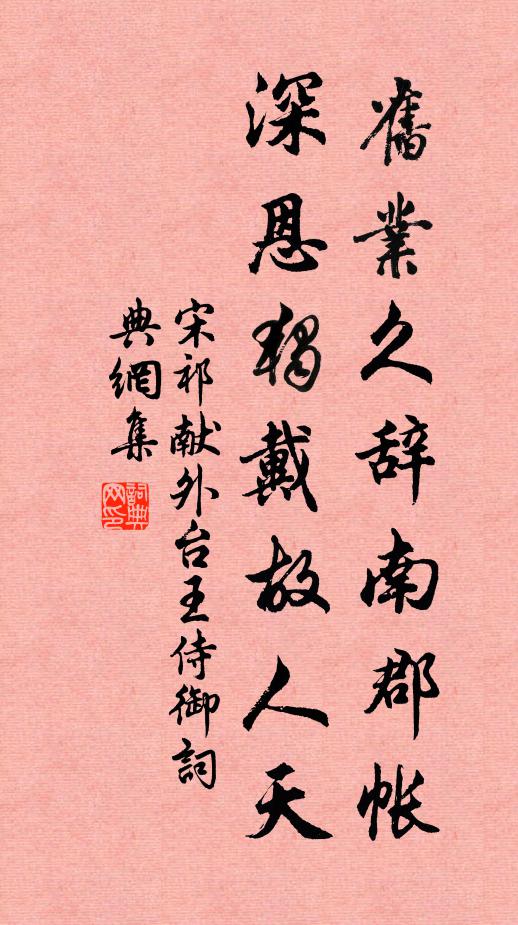 舊業久辞南郡帐
深恩獨戴故人天
宋祁献外台王侍御詞
典網集
詞典
网印